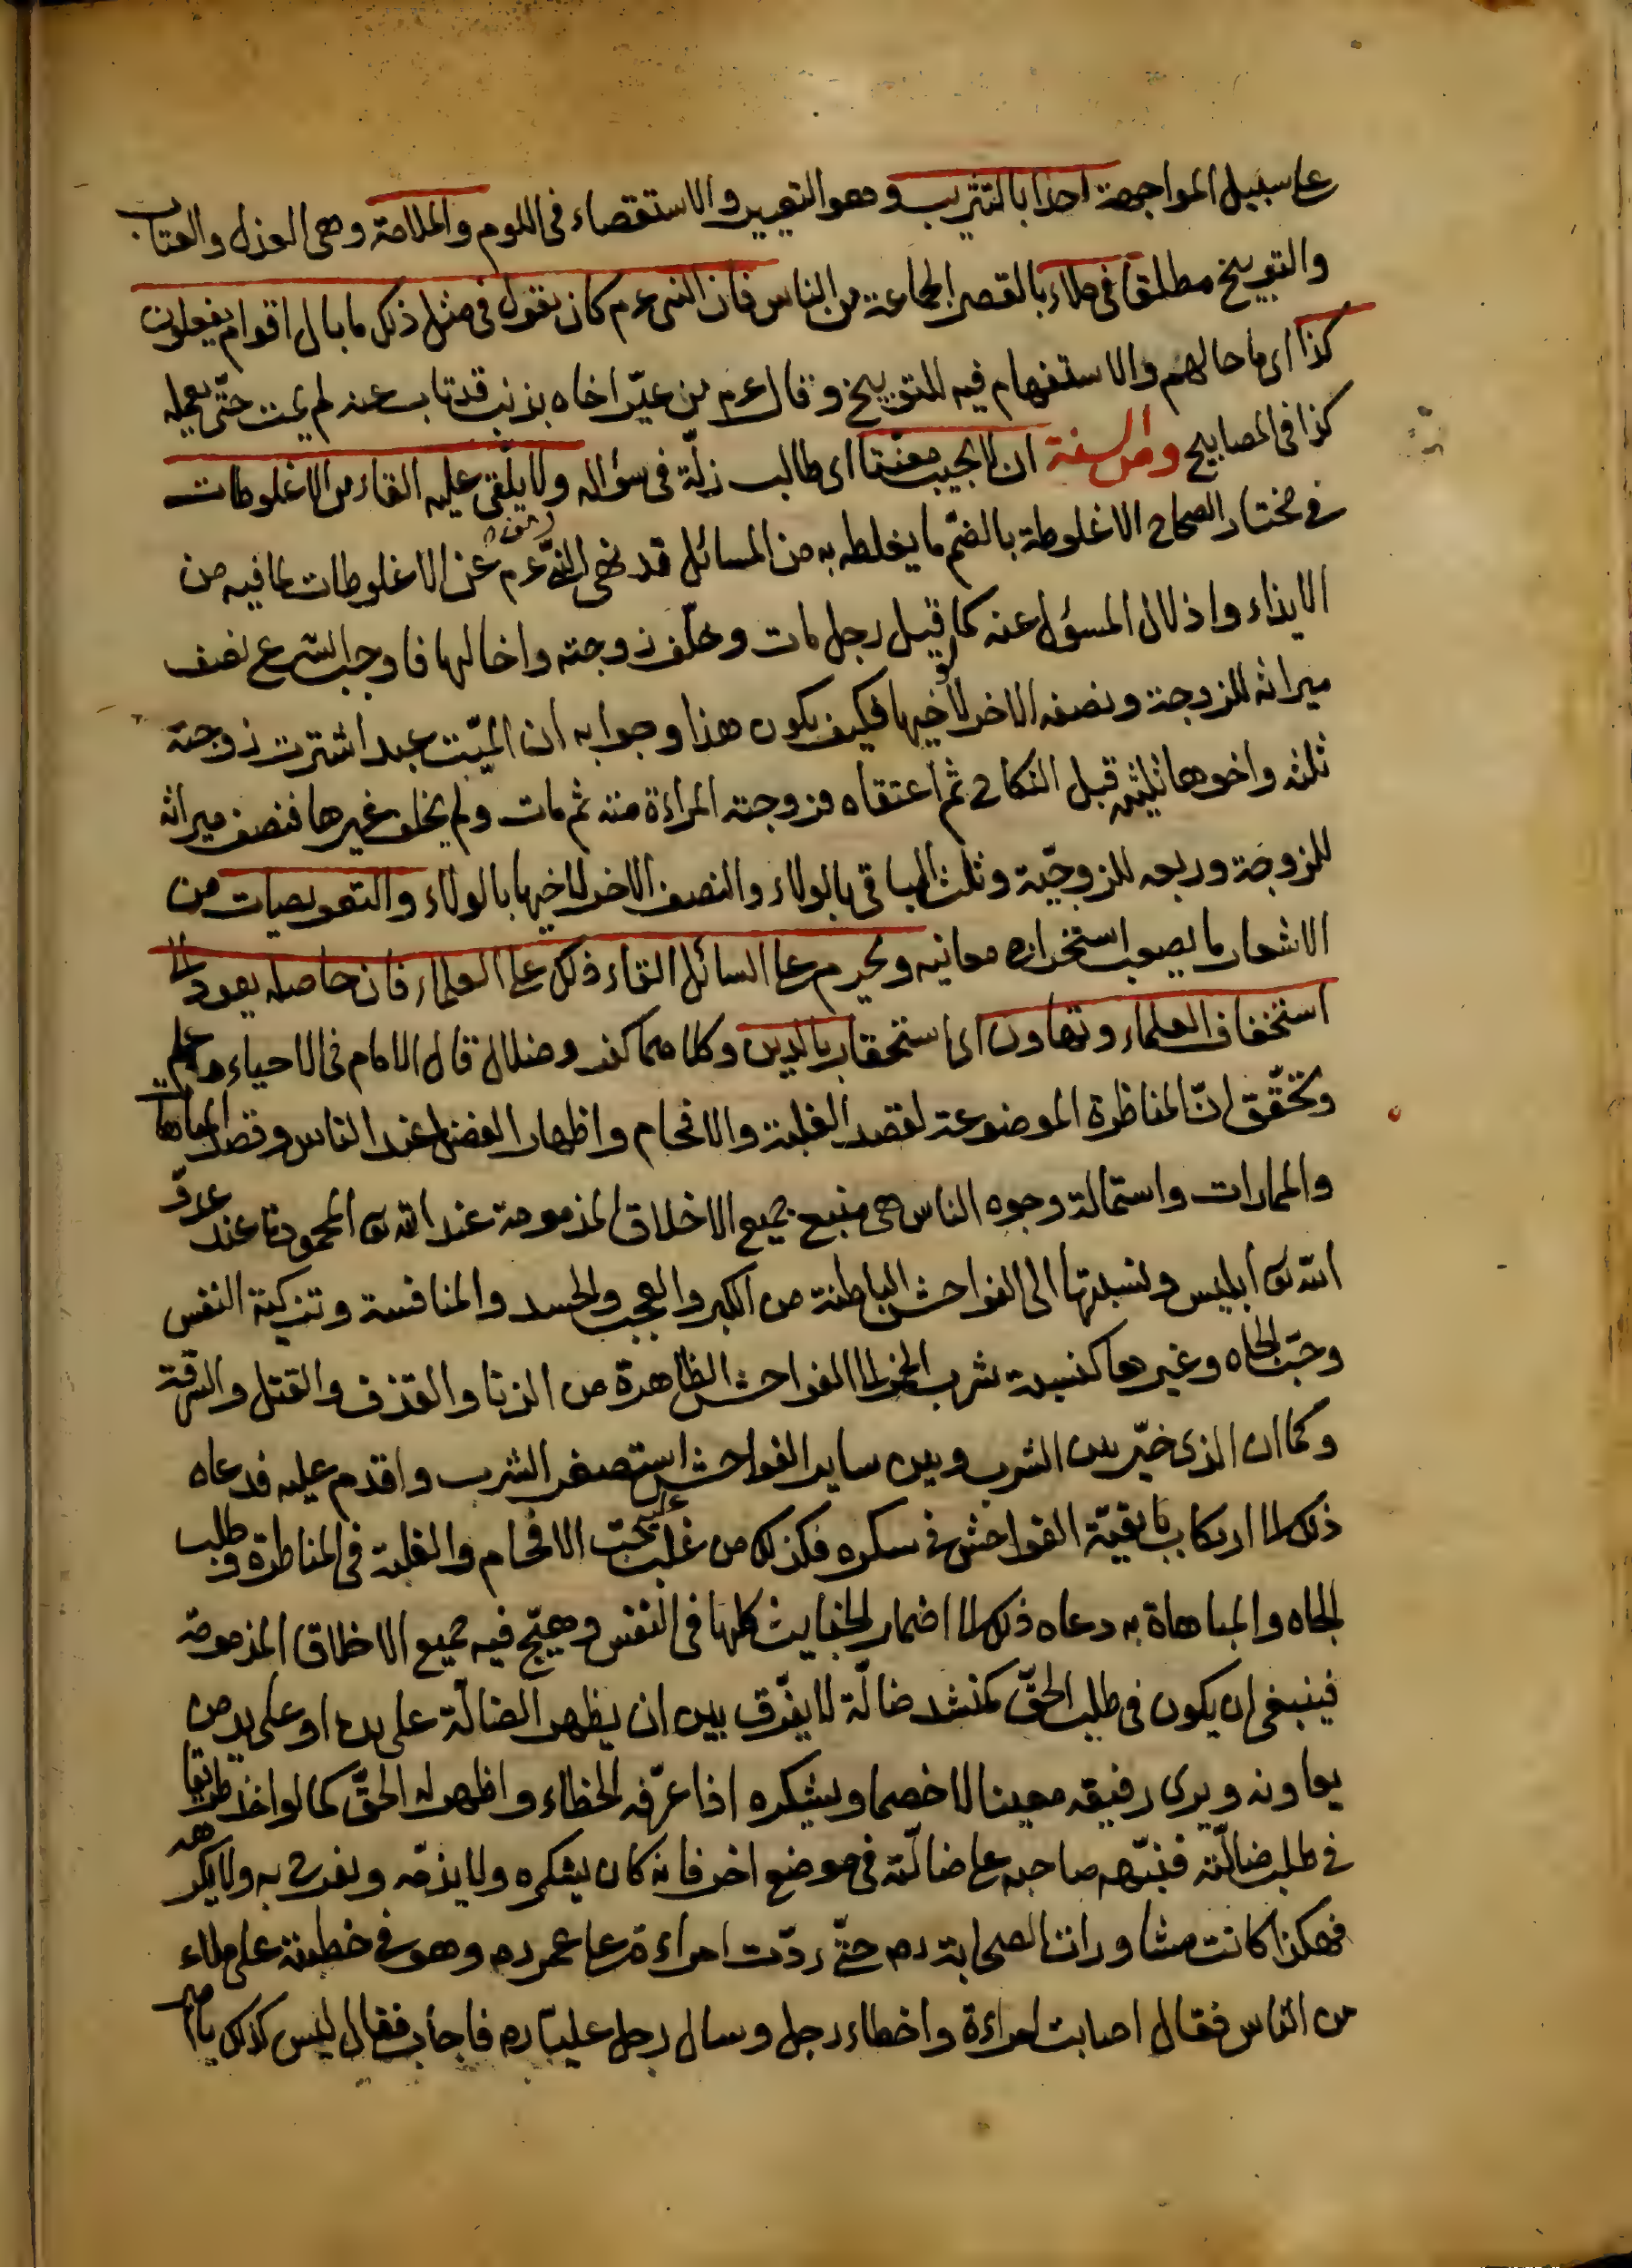 على سبيل المواجهة احدا بالتثريب وهو التعيير والاستقصاء فى اللوم والملامة وهى العذل والعتاب
والتوبيخ مطلقا فى ملاء بالقصر الجماعة من الناس فان النبى عم كان يقول فى مثل ذلك ما بال اقوام يفعلون
كذا اى ما حالهم والاستفهام فيه للتوبيخ وقال عم من عيّر اخاه بذنب قد تاب عنه لم يمت حتّى يعمله
كذا فى المصابيح ومن السنة ان لا يجيب معنّتا اى طالب زلّة فى سؤاله ولا يلقى عليه القاء من الاغلوطات
فى مختار الصحاح الاغلوطة بالضمّ ما يغلط به من المسائل قد نهى النبى عم عن الاغلوطات لما فيه من
الايذاء واذلال المسؤل عنه كما قيل رجل مات وخلّف زوجته واخا لها فاوجب الشرع نصف
ميراثه للزوجة ونصفه الاخر لاخيها فكيف يكون هذا وجوابه ان الميّت عبد اشترت زوجته
ثلثه واخوها ثلثيه قبل النكاح ثم اعتقاه فزوجته المراءة منه ثم مات ولم يخلف غيرها فنصف ميراثه
للزوجة وربعه للزوجيّة وثلث الباقى بالولاء والنصف الاخر لاخيها بالولاء والتعويصيات من
الاشعار ما يصعب استخراج معانيه ويحرم على السائل القاء ذلك على العلماء فان حاصله يعود الى
استخفاف العلماء وتهاون اى استحقار بالدين وكلاهما كفر وضلال قال الامام فى الاحياء واعلم
وتحقّق انّ المناظرة الموضوعة لقصد الغلبة والافحام واظهار الفضل عند الناس وقصد المباهات
والممارات واستمالة وجوه الناس هى منبع جميع الاخلاق المذمومة عند الله تع المحمودة عند عدوّ
الله تع ابليس ونسبتها الى الفواحش الباطنة من الكبر والعجب والحسد والمنافسة وتزكية النفس
وحبّ الجاه وغيرها كنسبة شرب الخمر الى الفواحش الظاهرة من الزنا والقذف والقتل والسرقة
وكما ان الذى خيّر بين الشرب وبين ساير الفواحش استصغر الشرب واقدم عليه فدعاه
ذلك الى ارتكاب بقيّة الفواحش فى سكره فكذلك من غلب عليه حبّ الافحام والغلبة فى المناظرة وطلب
الجاه والمباهاة به دعاه ذلك الى اضمار الخبايث كلها فى النفس وهيّج فيه جميع الاخلاق المذمومة
فينبغى ان يكون فى طلب الحقّ كمنشد ضالّة لا يفرّق بين ان يظهر الضالّة على يده او على يد من
يعاونه ويرى رفيقه معينا لا خصما ويشكره اذا عرّفه الخطاء واظهر له الحقّ كما لو اخذ طريقا
فى طلب ضالّته فنبّهه صاحبه على ضالّته فى موضع اخر فانه كان يشكره ولا يذمّه ويفرح به ولا يكرهه
فهكذا كانت مشاورات الصحابة رم حتّى ردّت امراءة على عمر رم وهو فى خطبته على ملاء
من الناس فقال اصابت امراءة واخطاء رجل وسال رجل عليّا رم فاجاب فقال ليس كذلك يا امير